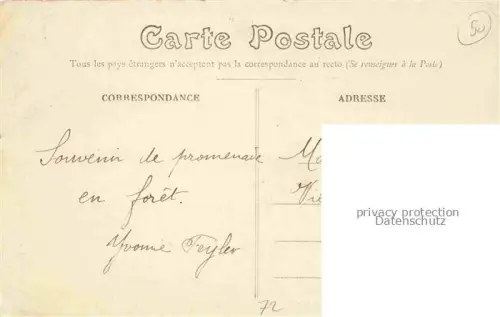 Carte Postale
50
Tous les pays étrangers n'acceptent pas la correspondance au recto (Se renseigner à la Poste)
CORRESPONDANCE
ADRESSE
Souvenir de promenade
en forêt.
Yvonne Feyler
privacy protection
Datenschutz
72